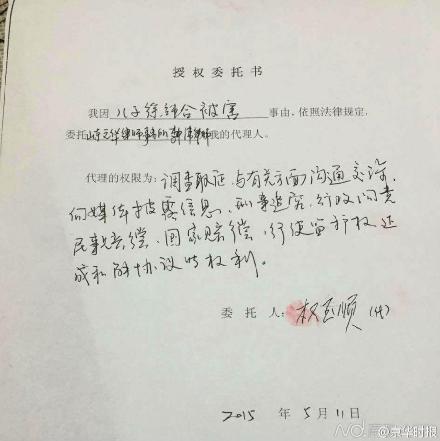 授权委托书
我因 儿子徐纯合被害 事由，依照法律规定，
委托山东 律师事务所 律师我的代理人。
代理的权限为：调查取证、与有关方面沟通交涉、
向媒体披露信息、刑事追究、行政问责
民事赔偿、国家赔偿、行使监护权、达
成和解协议等权利。
委 托 人：权玉顺（代）
2015 年 5 月 11 日
@京华时报